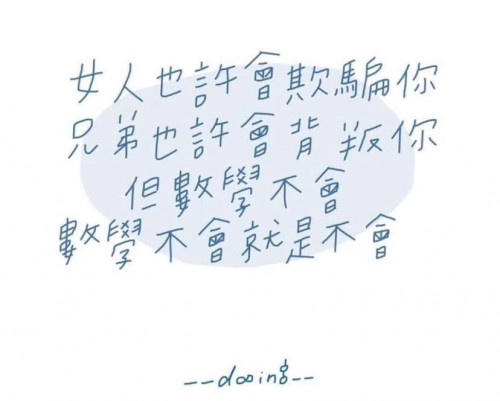 女人也許會欺騙你
兄弟也許會背叛你
但數學不會
數學不會就是不會
--dooing--